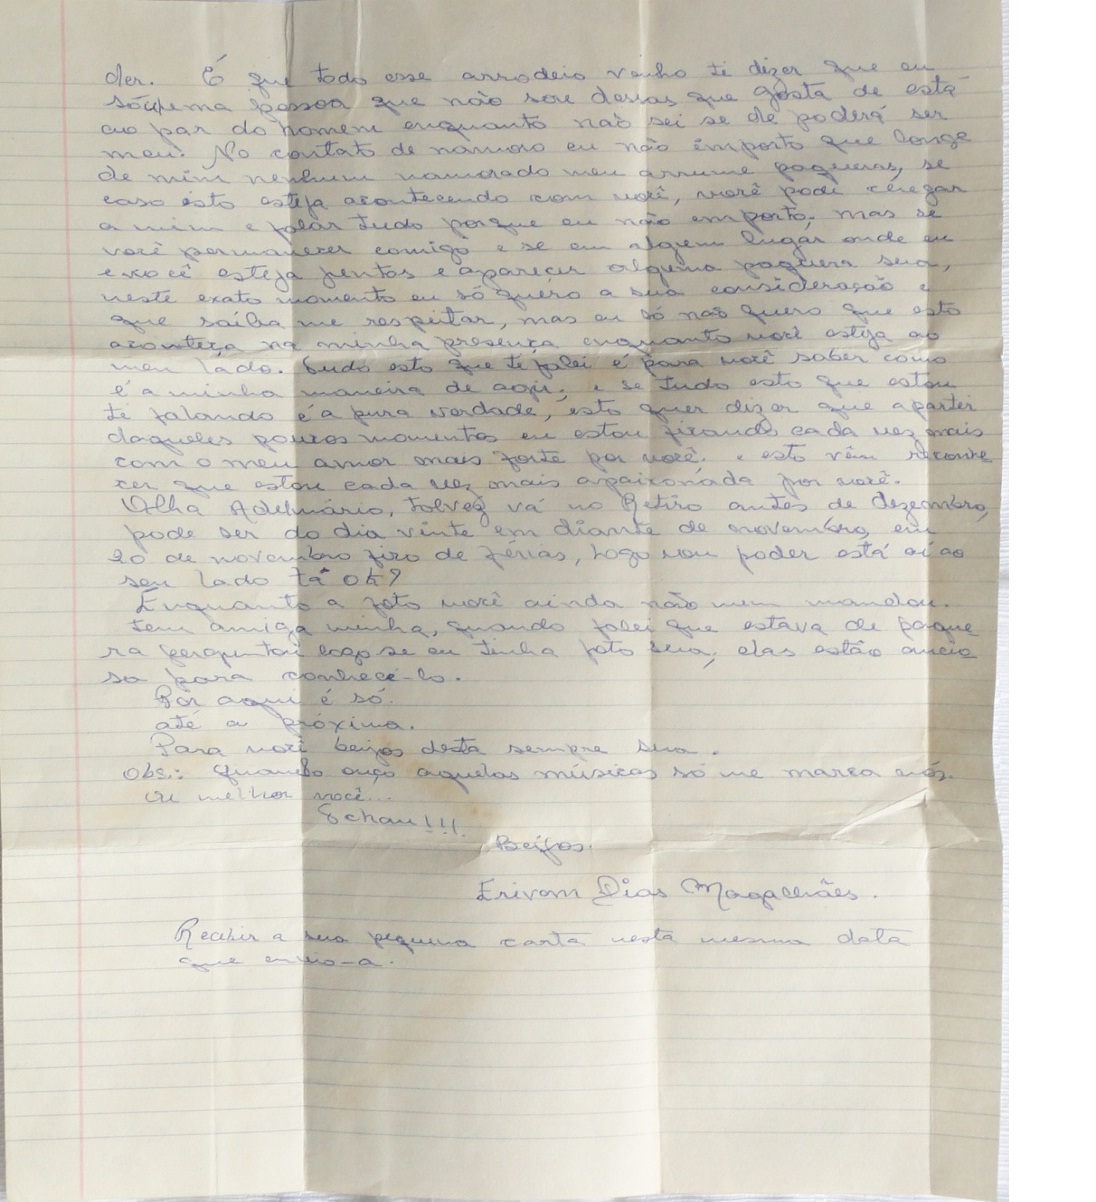 der. É que todo esse arrodeio venho ti dizer que eu
sou uma pessoa que não sou dessas que gosta de está
ao par do homem enquanto não sei se ele poderá ser
meu. No contato de namoro eu não importo que longe
de mim nenhum namorado meu arrume paqueras, se
caso isto esteja acontecendo com você, você pode chegar
a mim e falar tudo porque eu não emporto, mas se
você permanecer comigo e se em algem lugar onde eu
e você esteja juntos e aparecer alguma paquera sua,
neste exato momento eu só quero a sua consideração e
que saiba me respeitar, mas eu só não quero que isto
aconteça na minha presença enquanto você esteja ao
meu lado. Tudo isto que ti falei é para você saber como
é a minha maneira de agir, e se tudo isto que estou
ti falando é a pura verdade, isto quer dizer que aparter
daqueles poucos momentos eu estou ficando cada vez mais
com o meu amor mais forte por você. e esto vêm reconhe
cer que estou cada vez mais apaixonada por você.
Olha Adelmário, talvez vá no Retiro antes de dezembro,
pode ser do dia vinte em diante de novembro, eu
20 de novembro tiro de férias, logo vou poder está aí ao
seu lado tá ok?
Enquanto a foto você ainda não mem mandou.
tem amiga minha, quando falei que estava de paque
ra perguntou logo se eu tinha foto sua, elas estão ancio
sa para conhecê-lo.
Por aqui é só.
até a próxima.
Para você beijos desta sempre sua.
Obs.: Quando ouço aquelas músicas só me marca nós.
ou melhor você...
Tchau!!!
Beijos.
Erivam Dias Magalhães.
Recebir a sua pequena carta nesta mesma data
que envio-a.